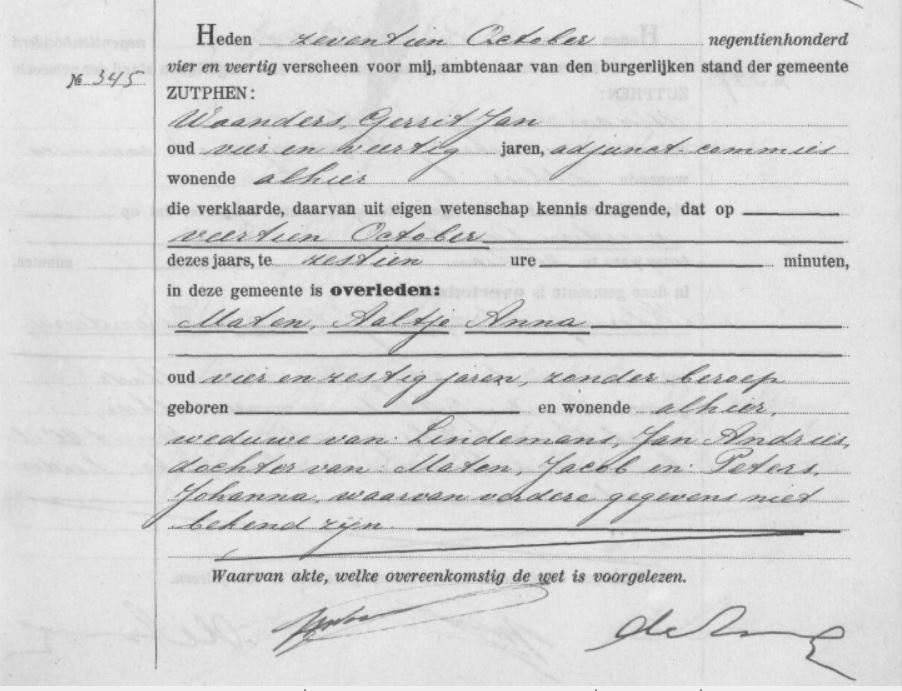 Heden zeventien October negentienhonderd
vier en veertig verscheen voor mij, ambtenaar van den burgerlijken stand der gemeente
№ 345
ZUTPHEN:
Waanders, Gerrit Jan
oud vier en veertig jaren, adjunct-commies
wonende alhier
die verklaarde, daarvan uit eigen wetenschap kennis dragende, dat op
veertien October
dezes jaars, te zestien ure minuten,
in deze gemeente is overleden:
Maten, Aaltje Anna
oud vier en zestig jaren, zonder beroep
geboren en wonende alhier,
weduwe van: Lindemans, Jan Andries,
dochter van: Maten, Jacob en: Peters,
Johanna, waarvan verdere gegevens niet
bekend zijn.
Waarvan akte, welke overeenkomstig de wet is voorgelezen.